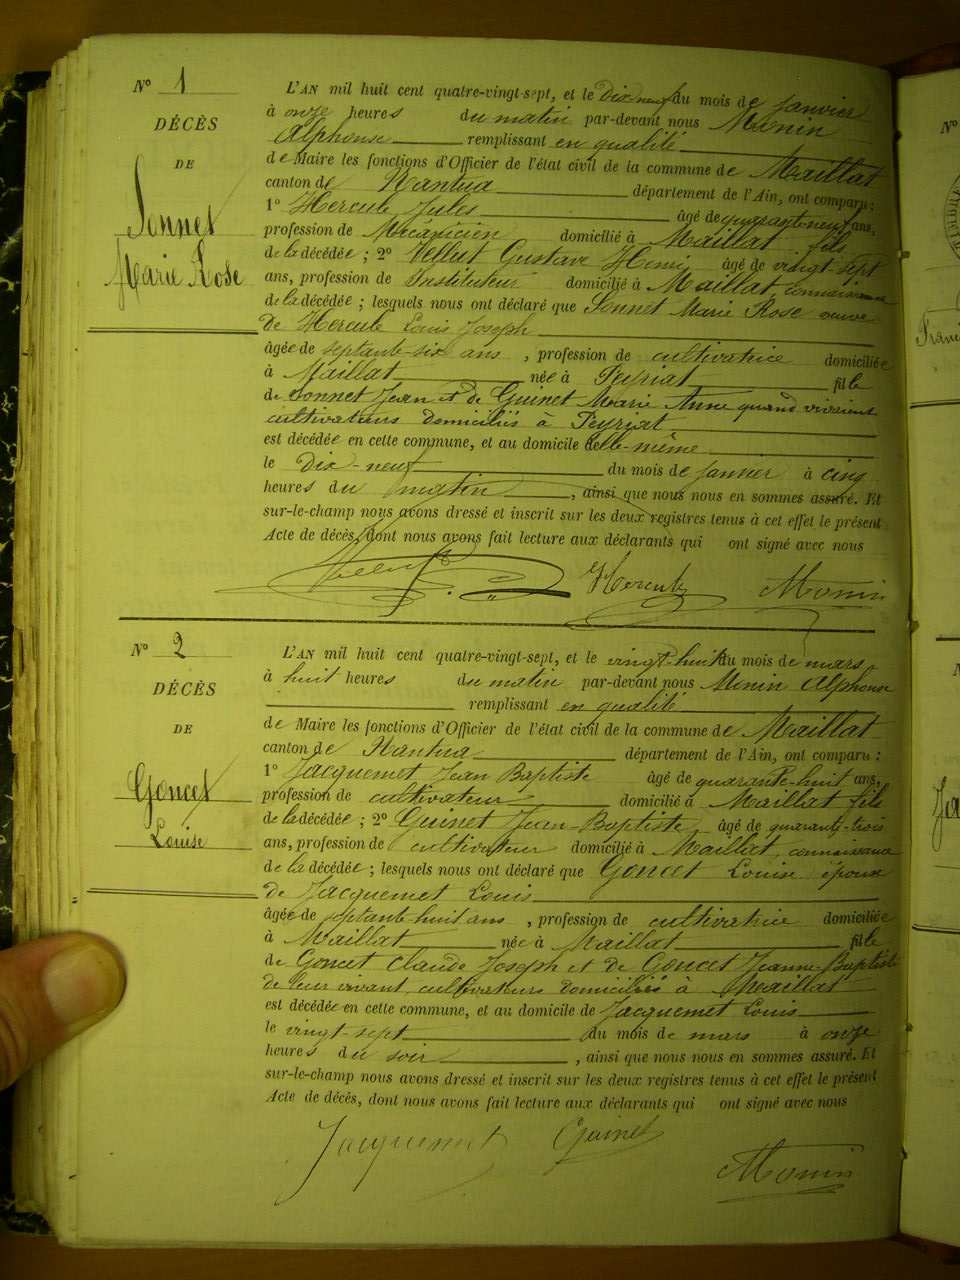 N° 1
DÉCÈS
DE
Sonnet
Marie Rose
L'AN mil huit cent quatre-vingt-sept, et le Dix neuf du mois de janvier
à onze heures du matin par-devant nous Monin
Alphonse remplissant en qualité
de Maire les fonctions d'Officier de l'état civil de la commune de Maillat
canton de Nantua département de l'Ain, ont comparu :
1° Hercule Jules âgé de quarante-neuf ans,
profession de Mécanicien domicilié à Maillat fils
de la décédée ; 2° Vellut Gustave Henri âgé de vingt sept
ans, profession de Instituteur domicilié à Maillat connaissance
de la décédée ; lesquels nous ont déclaré que Sonnet Marie Rose veuve
de Hercule Louis Joseph
âgée de septante-six ans , profession de cultivatrice domiciliée
à Maillat née à Peyriat fille
de Sonnet Jean et de Guinet Marie Anne quand vivaient
cultivateurs domiciliés à Peyriat
est décédée en cette commune, et au domicile d'elle-même
le Dix-neuf du mois de janvier à cinq
heures du matin , ainsi que nous nous en sommes assuré. Et
sur-le-champ nous avons dressé et inscrit sur les deux registres tenus à cet effet le présent
Acte de décès, dont nous avons fait lecture aux déclarants qui ont signé avec nous
Vellut Hercule Monin
N° 2
DÉCÈS
DE
Goncet
Louise
L'AN mil huit cent quatre-vingt-sept, et le vingt-huit du mois de mars
à huit heures du matin par-devant nous Monin Alphonse
remplissant en qualité
de Maire les fonctions d'Officier de l'état civil de la commune de Maillat
canton de Nantua département de l'Ain, ont comparu :
1° Jacquemet Jean Baptiste âgé de quarante-huit ans,
profession de cultivateur domicilié à Maillat fils
de la décédée ; 2° Guinet Jean-Baptiste âgé de quarante-trois
ans, profession de cultivateur domicilié à Maillat, connaissance
de la décédée ; lesquels nous ont déclaré que Goncet Louise épouse
de Jacquemet Louis
âgée de septante-huit ans , profession de cultivatrice domiciliée
à Maillat née à Maillat fille
de Goncet Claude Joseph et de Goncet Jeanne-Baptiste
de leur vivant cultivateurs domiciliés à Maillat
est décédée en cette commune, et au domicile de Jacquemet Louis
le vingt-sept du mois de mars à onze
heures du soir , ainsi que nous nous en sommes assuré. Et
sur-le-champ nous avons dressé et inscrit sur les deux registres tenus à cet effet le présent
Acte de décès, dont nous avons fait lecture aux déclarants qui ont signé avec nous
Jacquemet Guinet
Monin
N°